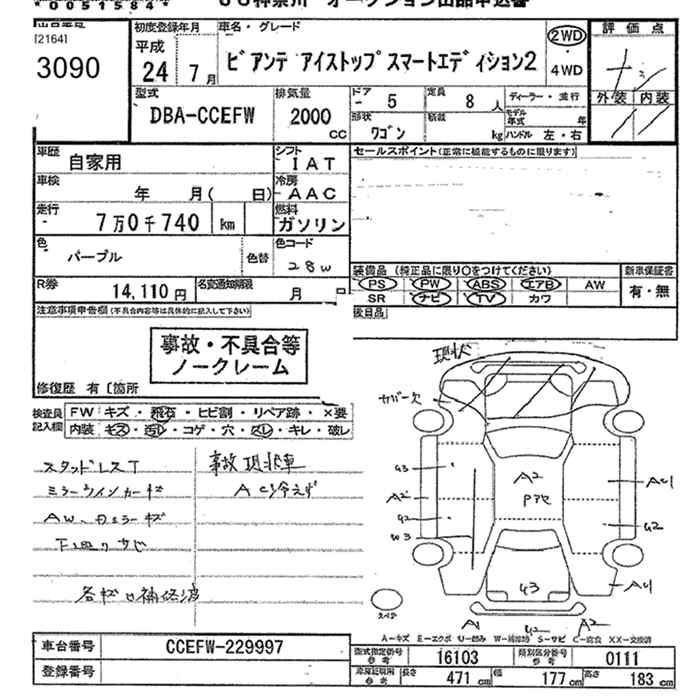 *00515844*
[2164]
3090
初度登録年月
平成
24年 7月
車名・グレード
ビアンテ アイストップスマートエディション2
2WD
・
4WD
評価点
外装 内装
型式
DBA-CCEFW
排気量
2000
CC
ドア
- 5
定員
8人
形状
ワゴン
積載
kg
ディーラー・並行
モデル年式 年
ハンドル 左・右
車歴
自家用
シフト
IAT
セールスポイント(正常に機能するものに限ります)
車検
年 月( 日)
冷房
AAC
走行
7万0千740 km
燃料
ガソリン
色
パープル
色替
色コード
28W
R券
14,110円
名変通知期限
月 日
装備品 (純正品に限り○をつけてください)
PS PW ABS エアB AW
SR ナビ TV カワ
新車保証書
有・無
後日品
注意事項申告欄(不具合内容等は具体的に記入して下さい)
事故・不具合等
ノークレーム
修復歴 有〔箇所
検査員
記入欄
FW キズ・飛石・ヒビ割・リペア跡・×要
内装 キズ・汚レ・コゲ・穴・スレ・キレ・破レ
スタッドレスT
事故現状車
AC冷えず
現状
A2
A2
G3
A2
スペア
A1
A2
A-キズ E-エクボ U-凹み W-補修跡 S-サビ C-腐食 XX-交換済
車台番号
CCEFW-229997
登録番号
型式指定番号
参考
16103
類別区分番号
参考
0111
参考
長さ
471 cm
幅
177 cm
高さ
183 cm